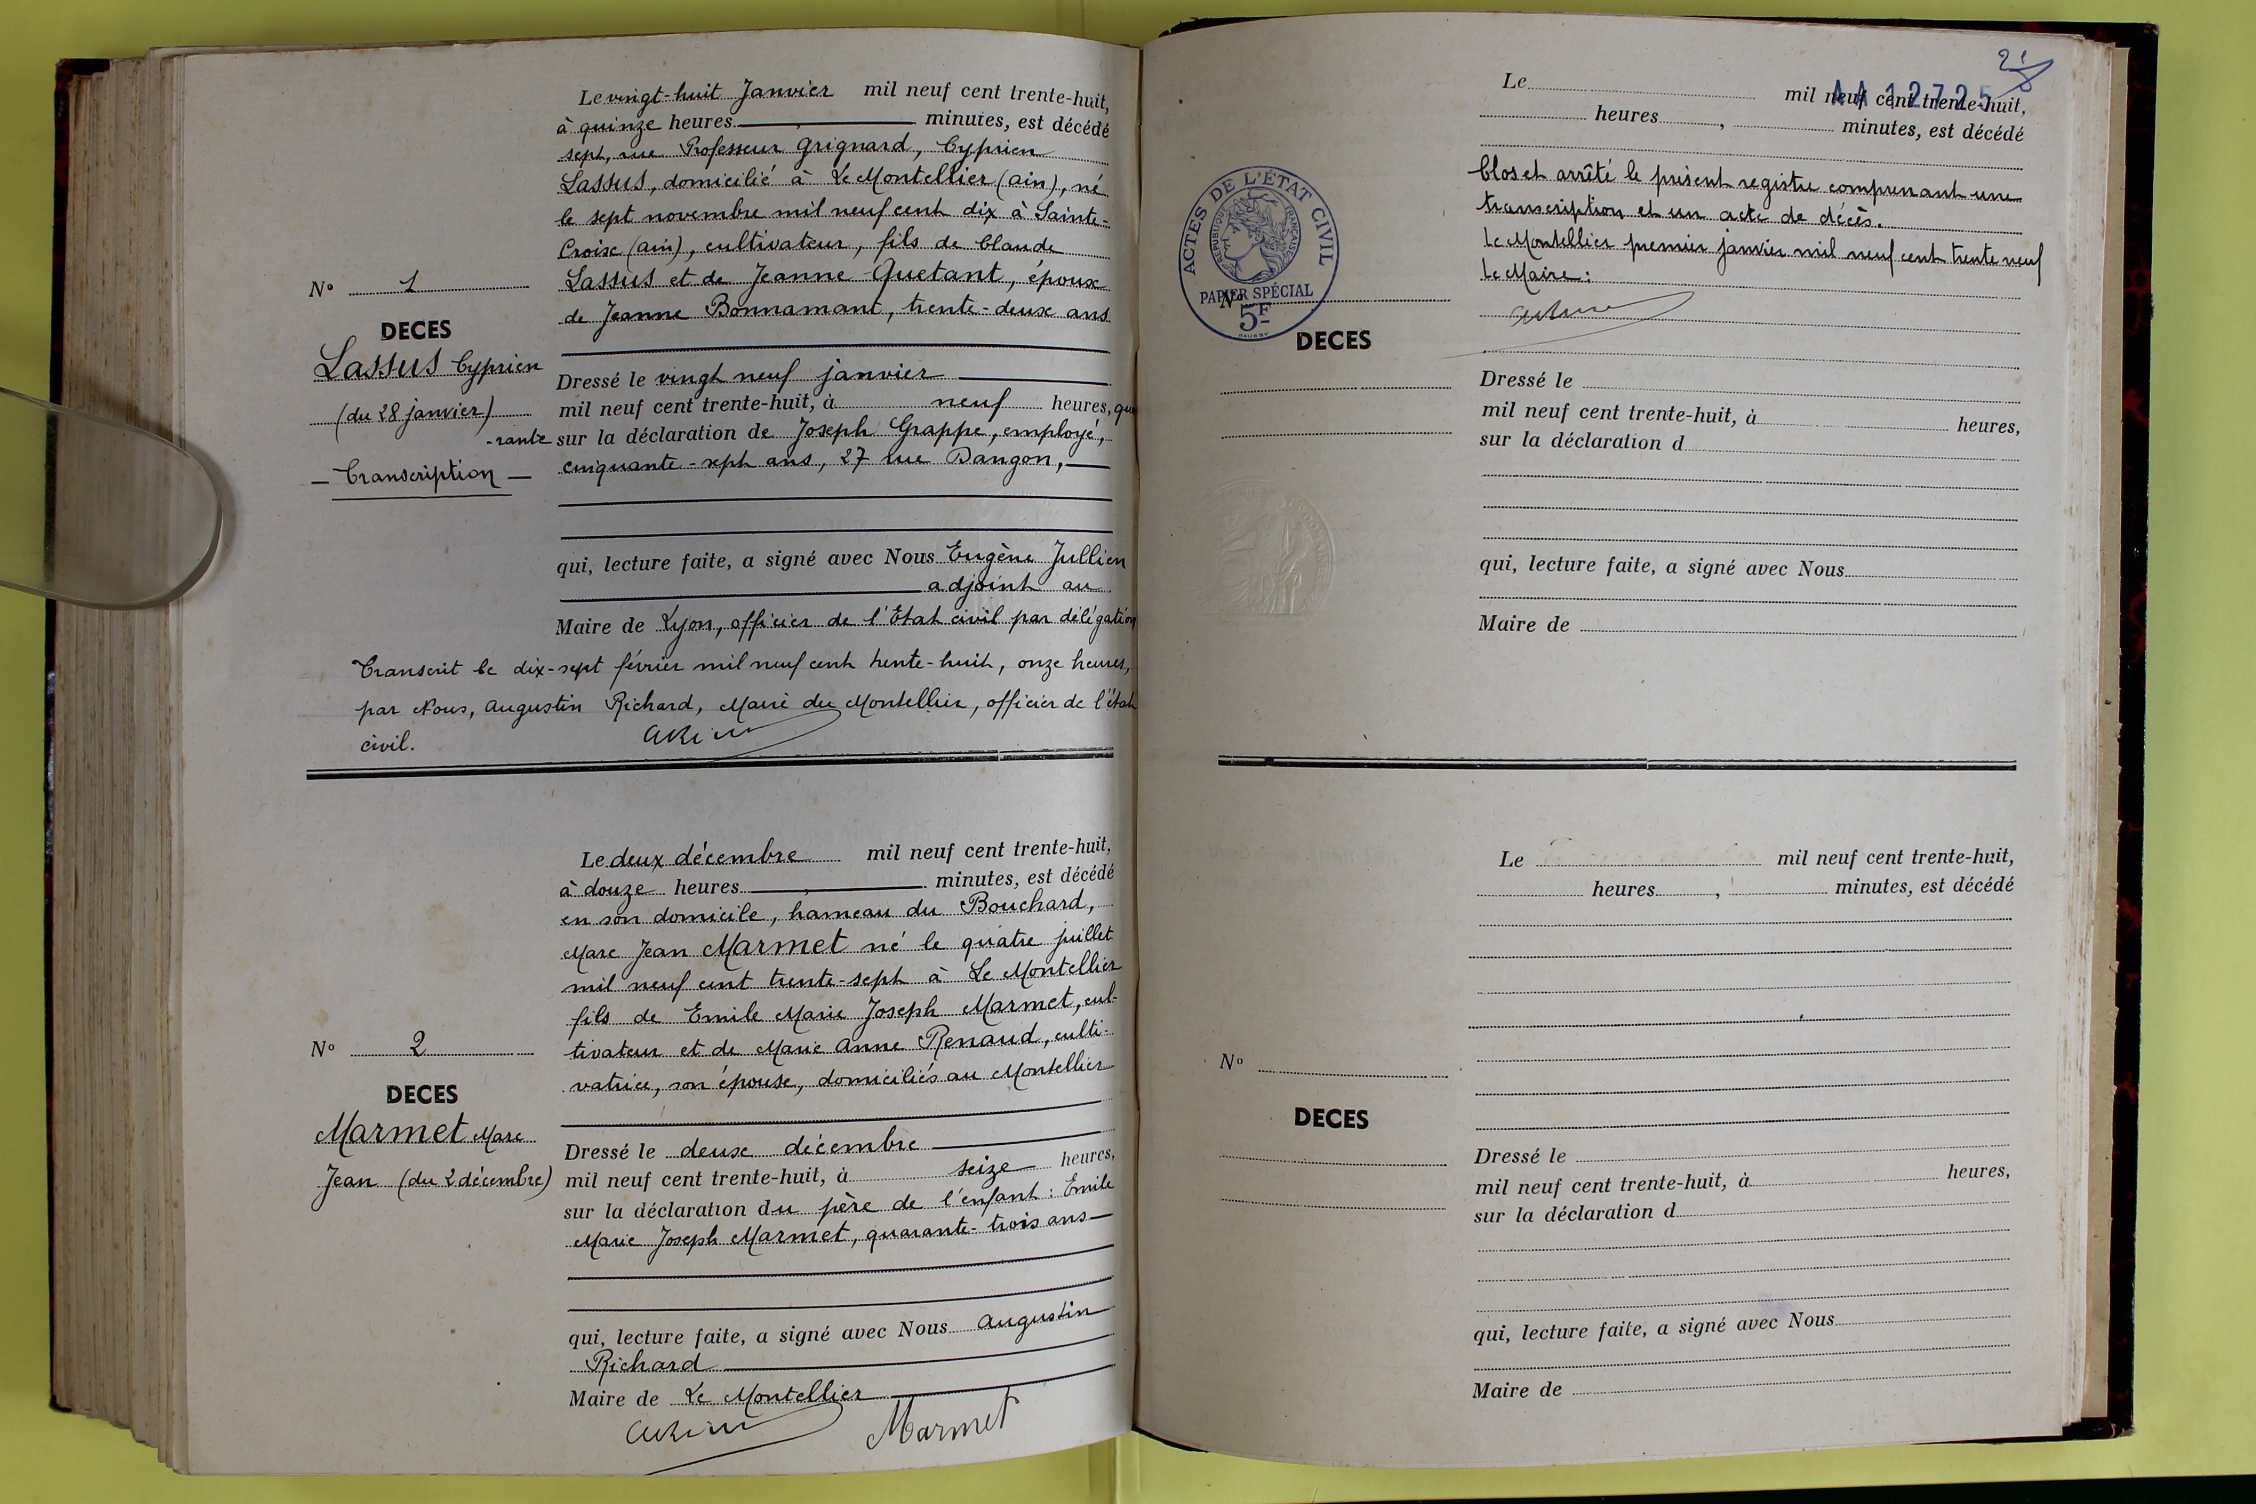 Le vingt-huit Janvier mil neuf cent trente-huit,
à quinze heures , minutes, est décédé
sept, rue Professeur Grignard, Cyprien
Lassus, domicilié à Le Montellier (Ain), né
le sept novembre mil neuf cent dix à Sainte-
Croix (Ain), cultivateur, fils de Claude
Lassus et de Jeanne Quetant, époux
de Jeanne Bonnamant, trente-deux ans
N° 1
DECES
Lassus Cyprien
(du 28 janvier)
— Transcription —
Dressé le vingt neuf janvier
mil neuf cent trente-huit, à neuf heures, qua
-rante sur la déclaration de Joseph Grappe, employé,
cinquante-sept ans, 27 rue Dangon,
qui, lecture faite, a signé avec Nous Eugène Jullien
adjoint au
Maire de Lyon, officier de l'Etat civil par délégation
Transcrit le dix-sept février mil neuf cent trente-huit, onze heures,
par Nous, Augustin Richard, Maire du Montellier, officier de l'état
civil.
Le deux décembre mil neuf cent trente-huit,
à douze heures , minutes, est décédé
en son domicile, hameau du Bouchard,
Marc Jean Marmet né le quatre juillet
mil neuf cent trente-sept à Le Montellier
fils de Emile Marie Joseph Marmet, cul-
tivateur et de Marie Anne Renaud, culti-
vatrice, son épouse, domiciliés au Montellier
N° 2
DECES
Marmet Marc
Jean (du 2 décembre)
Dressé le deux décembre
mil neuf cent trente-huit, à seize heures,
sur la déclaration du père de l'enfant : Emile
Marie Joseph Marmet, quarante-trois ans
qui, lecture faite, a signé avec Nous Augustin
Richard
Maire de Le Montellier
Marmet
21
AA 12725
Le mil neuf cent trente-huit,
heures , minutes, est décédé
Clos et arrêté le présent registre comprenant une
transcription et un acte de décès.
Le Montellier premier janvier mil neuf cent trente neuf
Le Maire :
ACTES DE L'ÉTAT CIVIL
REPUBLIQUE FRANÇAISE
PAPIER SPÉCIAL
5F
N°
DECES
Dressé le
mil neuf cent trente-huit, à heures,
sur la déclaration d
qui, lecture faite, a signé avec Nous
Maire de
Le mil neuf cent trente-huit,
heures , minutes, est décédé
N°
DECES
Dressé le
mil neuf cent trente-huit, à heures,
sur la déclaration d
qui, lecture faite, a signé avec Nous
Maire de